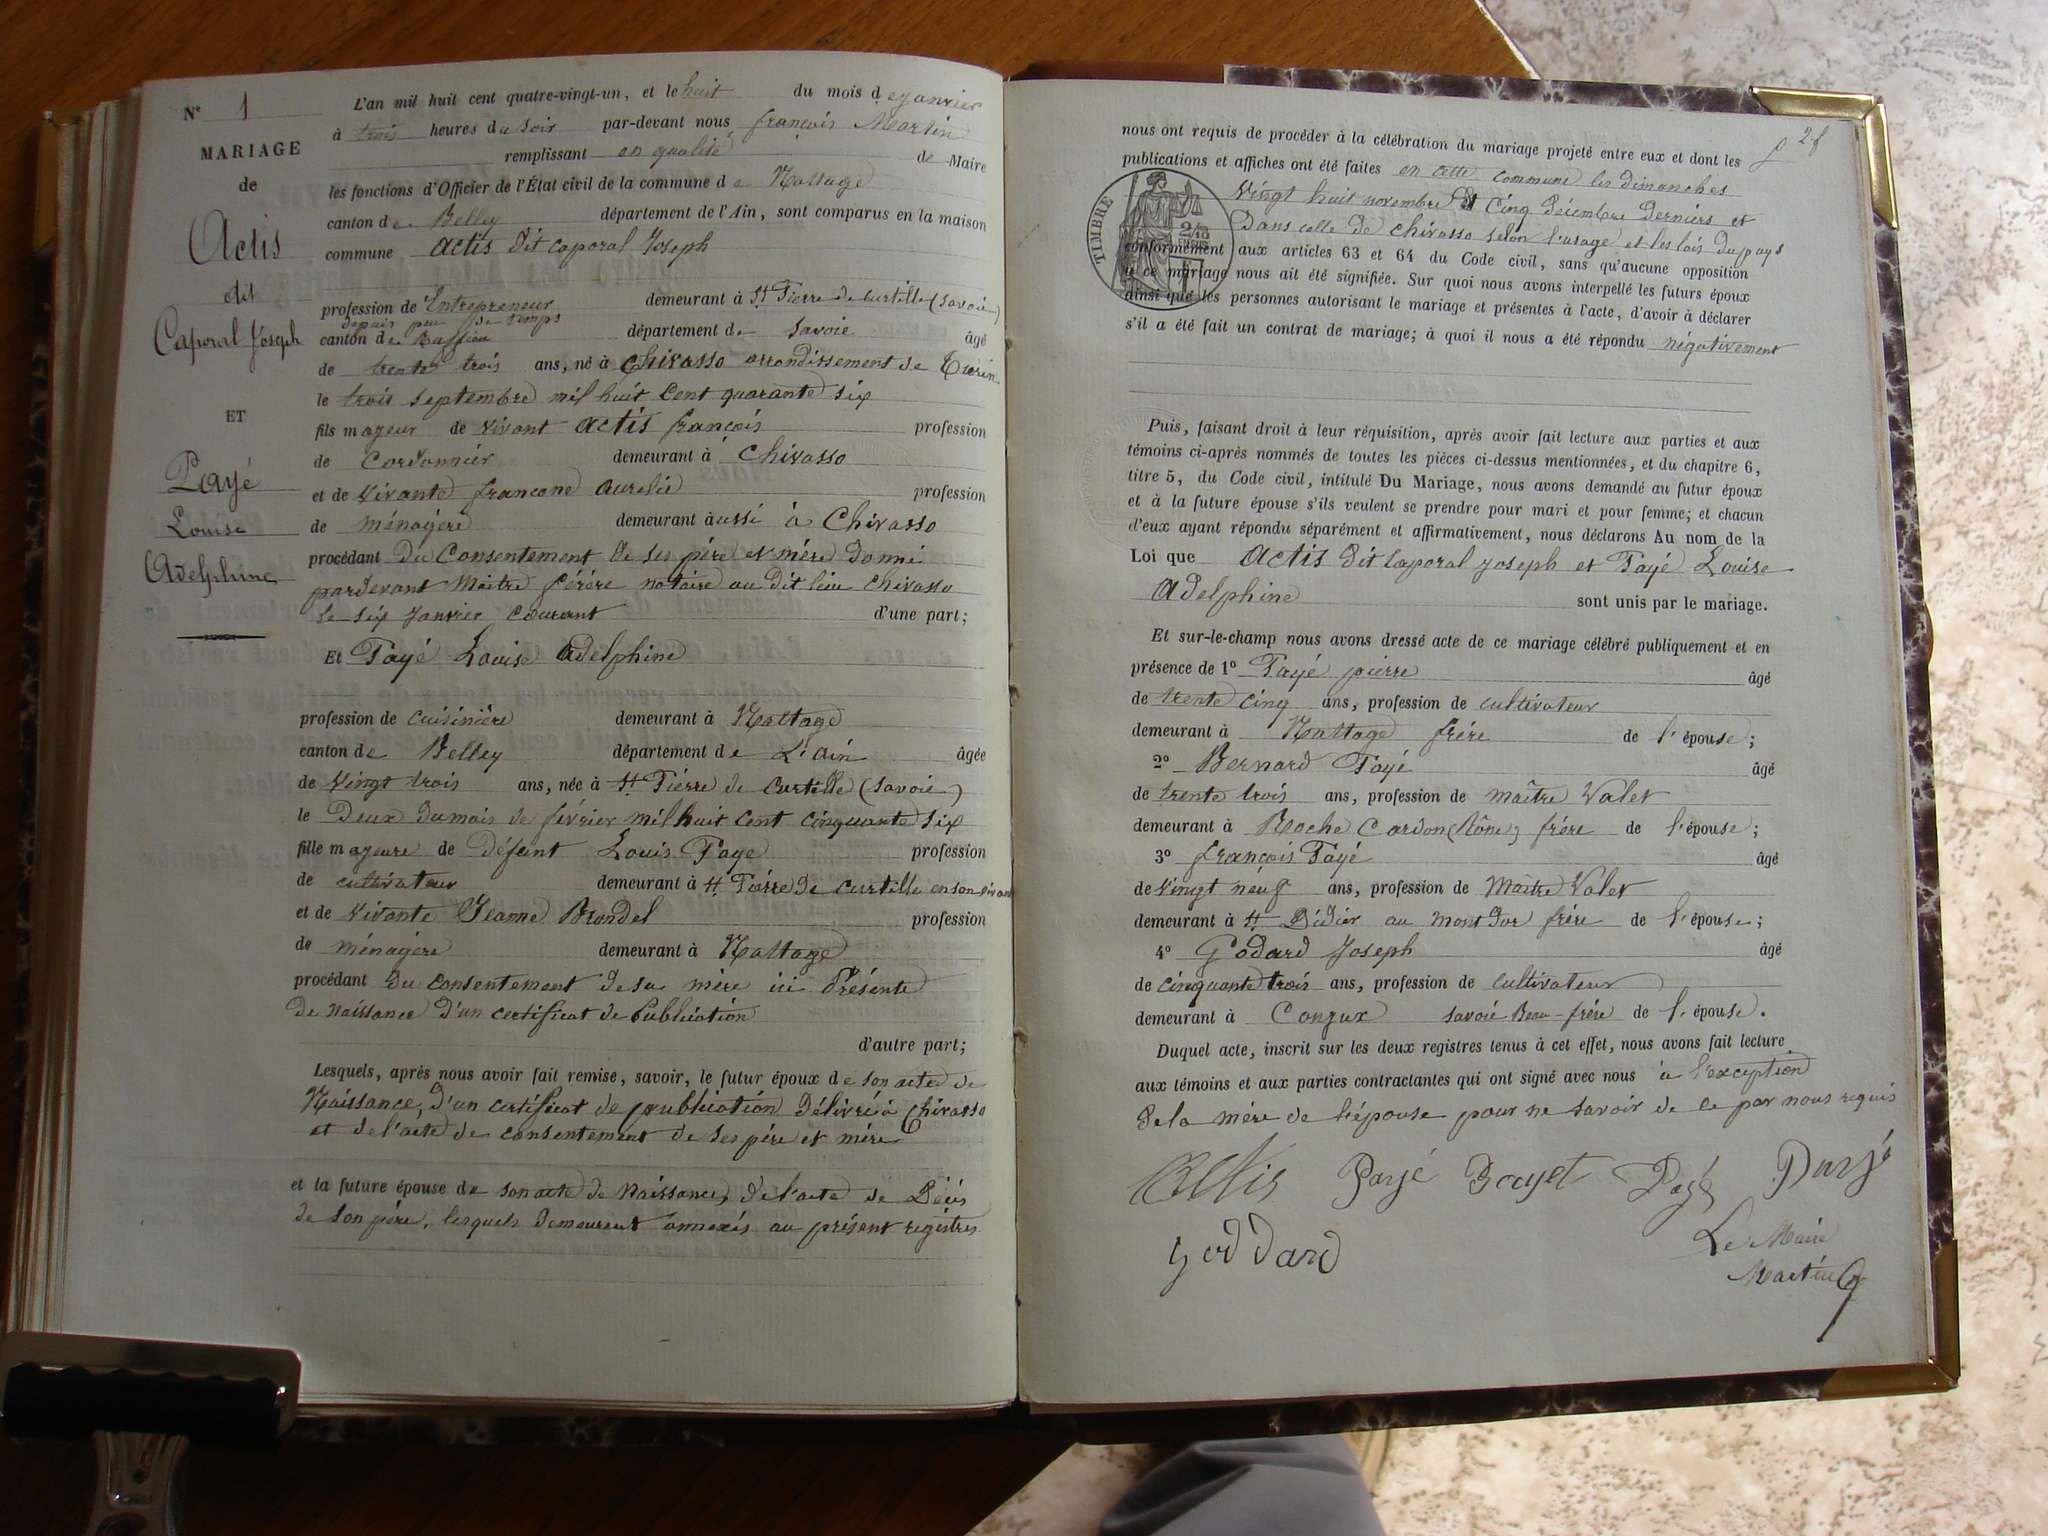 N° 1
MARIAGE
de
Actis
dit
Caporal Joseph
ET
Payé
Louise
Adelphine
L'an mil huit cent quatre-vingt-un, et le huit du mois de janvier
à trois heures du soir par-devant nous françois Martin
remplissant en qualité de Maire
les fonctions d'Officier de l'État civil de la commune de Nattage
canton de Belley département de l'Ain, sont comparus en la maison
commune Actis dit Caporal Joseph
profession de Entrepreneur demeurant à St Pierre de Curtille (Savoie)
depuis peu de temps
canton de Ruffieu département de Savoie âgé
de trente trois ans, né à Chivasso arrondissement de Turin
le trois septembre mil huit cent quarante six
fils majeur de vivant Actis françois profession
de Cordonnier demeurant à Chivasso
et de vivante francone aurelie profession
de ménagère demeurant aussi à Chivasso
procédant du Consentement de ses père et mère donné
pardevant Maître férére notaire au dit lieu Chivasso
le six Janvier Courant d'une part;
Et Payé Louise Adelphine
profession de cuisinière demeurant à Nattage
canton de Belley département de L'ain âgée
de vingt trois ans, née à St Pierre de Curtille (Savoie)
le deux du mois de février mil huit cent cinquante six
fille majeure de défunt Louis Paye profession
de cultivateur demeurant à St Pierre de Curtille en son vivant
et de vivante Jeanne Blondel profession
de ménagère demeurant à Nattage
procédant du consentement de sa mère ici Présente
de naissance d'un certificat de Publication
d'autre part;
Lesquels, après nous avoir fait remise, savoir, le futur époux de son acte de
Naissance, d'un certificat de publication délivré à Chivasso
et de l'acte de consentement de ses père et mère
et la future épouse de son acte de Naissance, de l'acte de Décès
de son père, lesquels demeurent annexés au présent registres
2 f
nous ont requis de procéder à la célébration du mariage projeté entre eux et dont les
publications et affiches ont été faites en cette commune les dimanches
vingt huit novembre et cinq décembre derniers et
dans celle de Chivasso selon l'usage et les lois du pays
TIMBRE
conformément aux articles 63 et 64 du Code civil, sans qu'aucune opposition
à ce mariage nous ait été signifiée. Sur quoi nous avons interpellé les futurs époux
ainsi que les personnes autorisant le mariage et présentes à l'acte, d'avoir à déclarer
s'il a été fait un contrat de mariage; à quoi il nous a été répondu négativement
Puis, faisant droit à leur réquisition, après avoir fait lecture aux parties et aux
témoins ci-après nommés de toutes les pièces ci-dessus mentionnées, et du chapitre 6,
titre 5, du Code civil, intitulé Du Mariage, nous avons demandé au futur époux
et à la future épouse s'ils veulent se prendre pour mari et pour femme; et chacun
d'eux ayant répondu séparément et affirmativement, nous déclarons Au nom de la
Loi que Actis dit Caporal Joseph et Payé Louise
Adelphine sont unis par le mariage.
Et sur-le-champ nous avons dressé acte de ce mariage célébré publiquement et en
présence de 1° Payé pierre âgé
de trente cinq ans, profession de cultivateur
demeurant à Nattage frère de l'épouse;
2° Bernard Payé âgé
de trente trois ans, profession de maître Valet
demeurant à Roche Cardon (Rône) frère de l'épouse;
3° françois Payé âgé
de vingt neuf ans, profession de Maître Valet
demeurant à St Didier au mont d'or frère de l'épouse;
4° Godard Joseph âgé
de cinquante trois ans, profession de cultivateur
demeurant à Conjux Savoie Beau-frère de l'épouse.
Duquel acte, inscrit sur les deux registres tenus à cet effet, nous avons fait lecture
aux témoins et aux parties contractantes qui ont signé avec nous à l'exception
de la mère de l'épouse pour ne savoir de ce par nous requis
Actis Payé Payé
Goddard
Le Maire
Martin